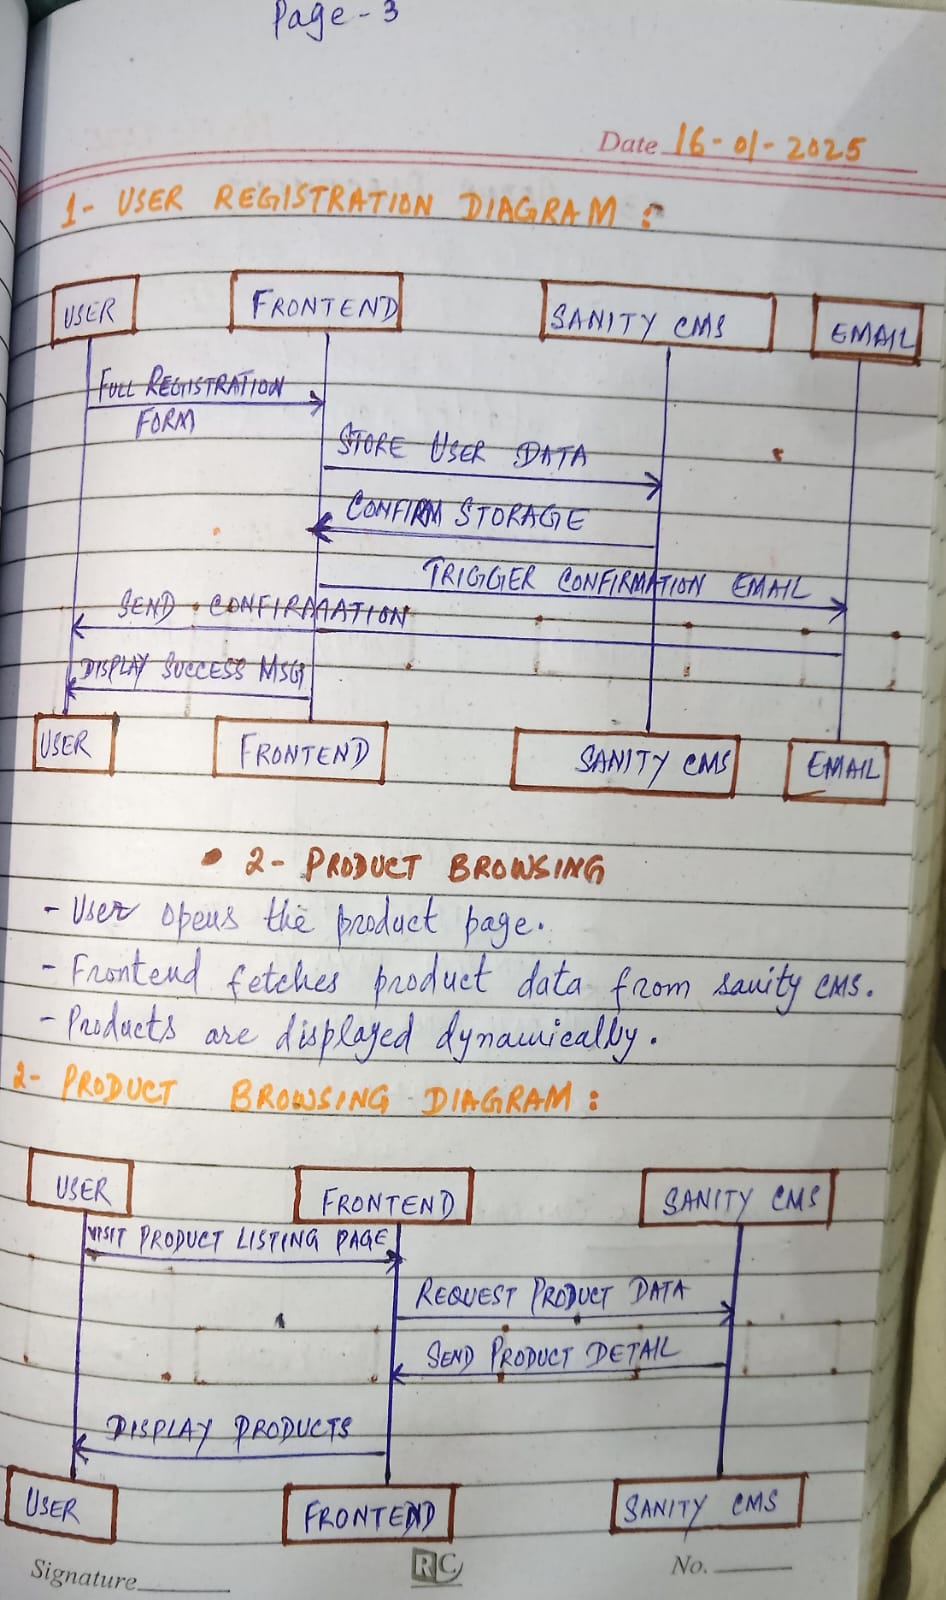 Page-3
Date 16-01-2025
1- USER REGISTRATION DIAGRAM :
USER FRONTEND SANITY CMS EMAIL
FULL REGISTRATION
FORM
STORE USER DATA
CONFIRM STORAGE
TRIGGER CONFIRMATION EMAIL
SEND CONFIRMATION
DISPLAY SUCCESS MSG
USER FRONTEND SANITY CMS EMAIL
• 2- PRODUCT BROWSING
- User opens the product page.
- Frontend fetches product data from sanity CMS.
- Products are displayed dynamically.
2- PRODUCT BROWSING DIAGRAM :
USER FRONTEND SANITY CMS
VISIT PRODUCT LISTING PAGE
REQUEST PRODUCT DATA
SEND PRODUCT DETAIL
DISPLAY PRODUCTS
USER FRONTEND SANITY CMS
Signature RC No.